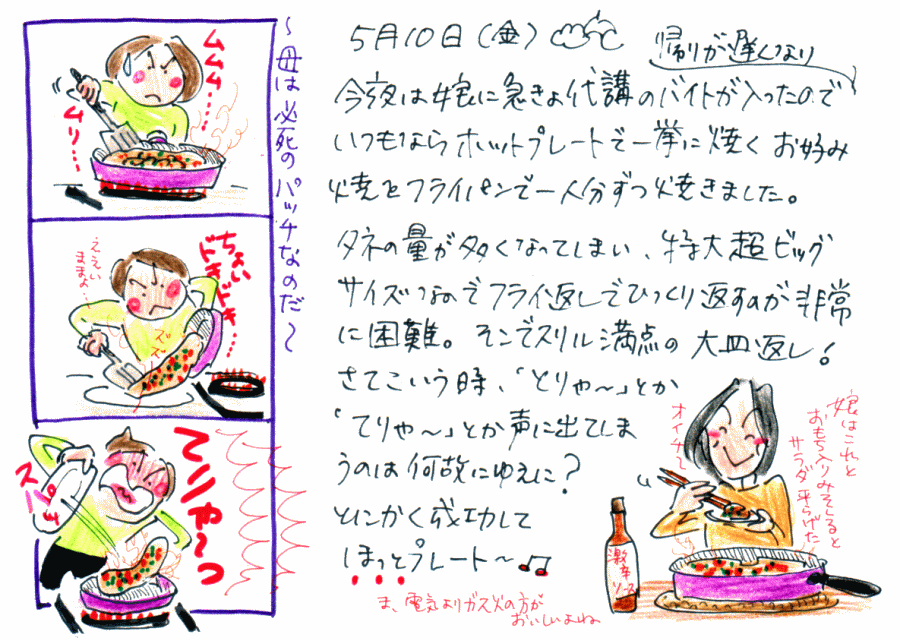 〜母は必死のパッチなのだ〜
ムムム…
ムリ…
ちょい
ドキドキ…
ええい
ままよ…
ズズ
てりゃ〜っ
スパッ
5月10日(金)
帰りが遅くなり
今夜は娘に急きょ代講のバイトが入ったので
いつもならホットプレートで一挙に焼くお好み
焼をフライパンで一人分ずつ焼きました。
タネの量が多くなってしまい、特大超ビッグ
サイズなのでフライ返しでひっくり返すのが非常
に困難。そこでスリル満点の大皿返し!
さてこいう時、「とりゃ〜」とか
「てりゃ〜」とか声に出てしま
うのは何故にゆえに?
とにかく成功して
ほっとプレート〜♫
ま、電気よりガス火の方が
おいしいよね
娘はこれと
おもち入りみそしると
サラダ平らげた
オイチ〜
激辛
ソース